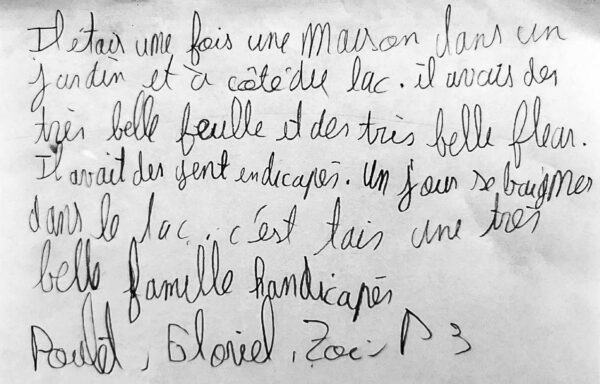 Il étais une fois une maison dans un
jardin et à côté du lac. il avais des
très belle feuille et des très belle fleur.
Il avait des gent endicapés. Un jour se baigner
dans le lac. c'est tais une très
belle famille handicapés
, Gloriel, Zoé P3